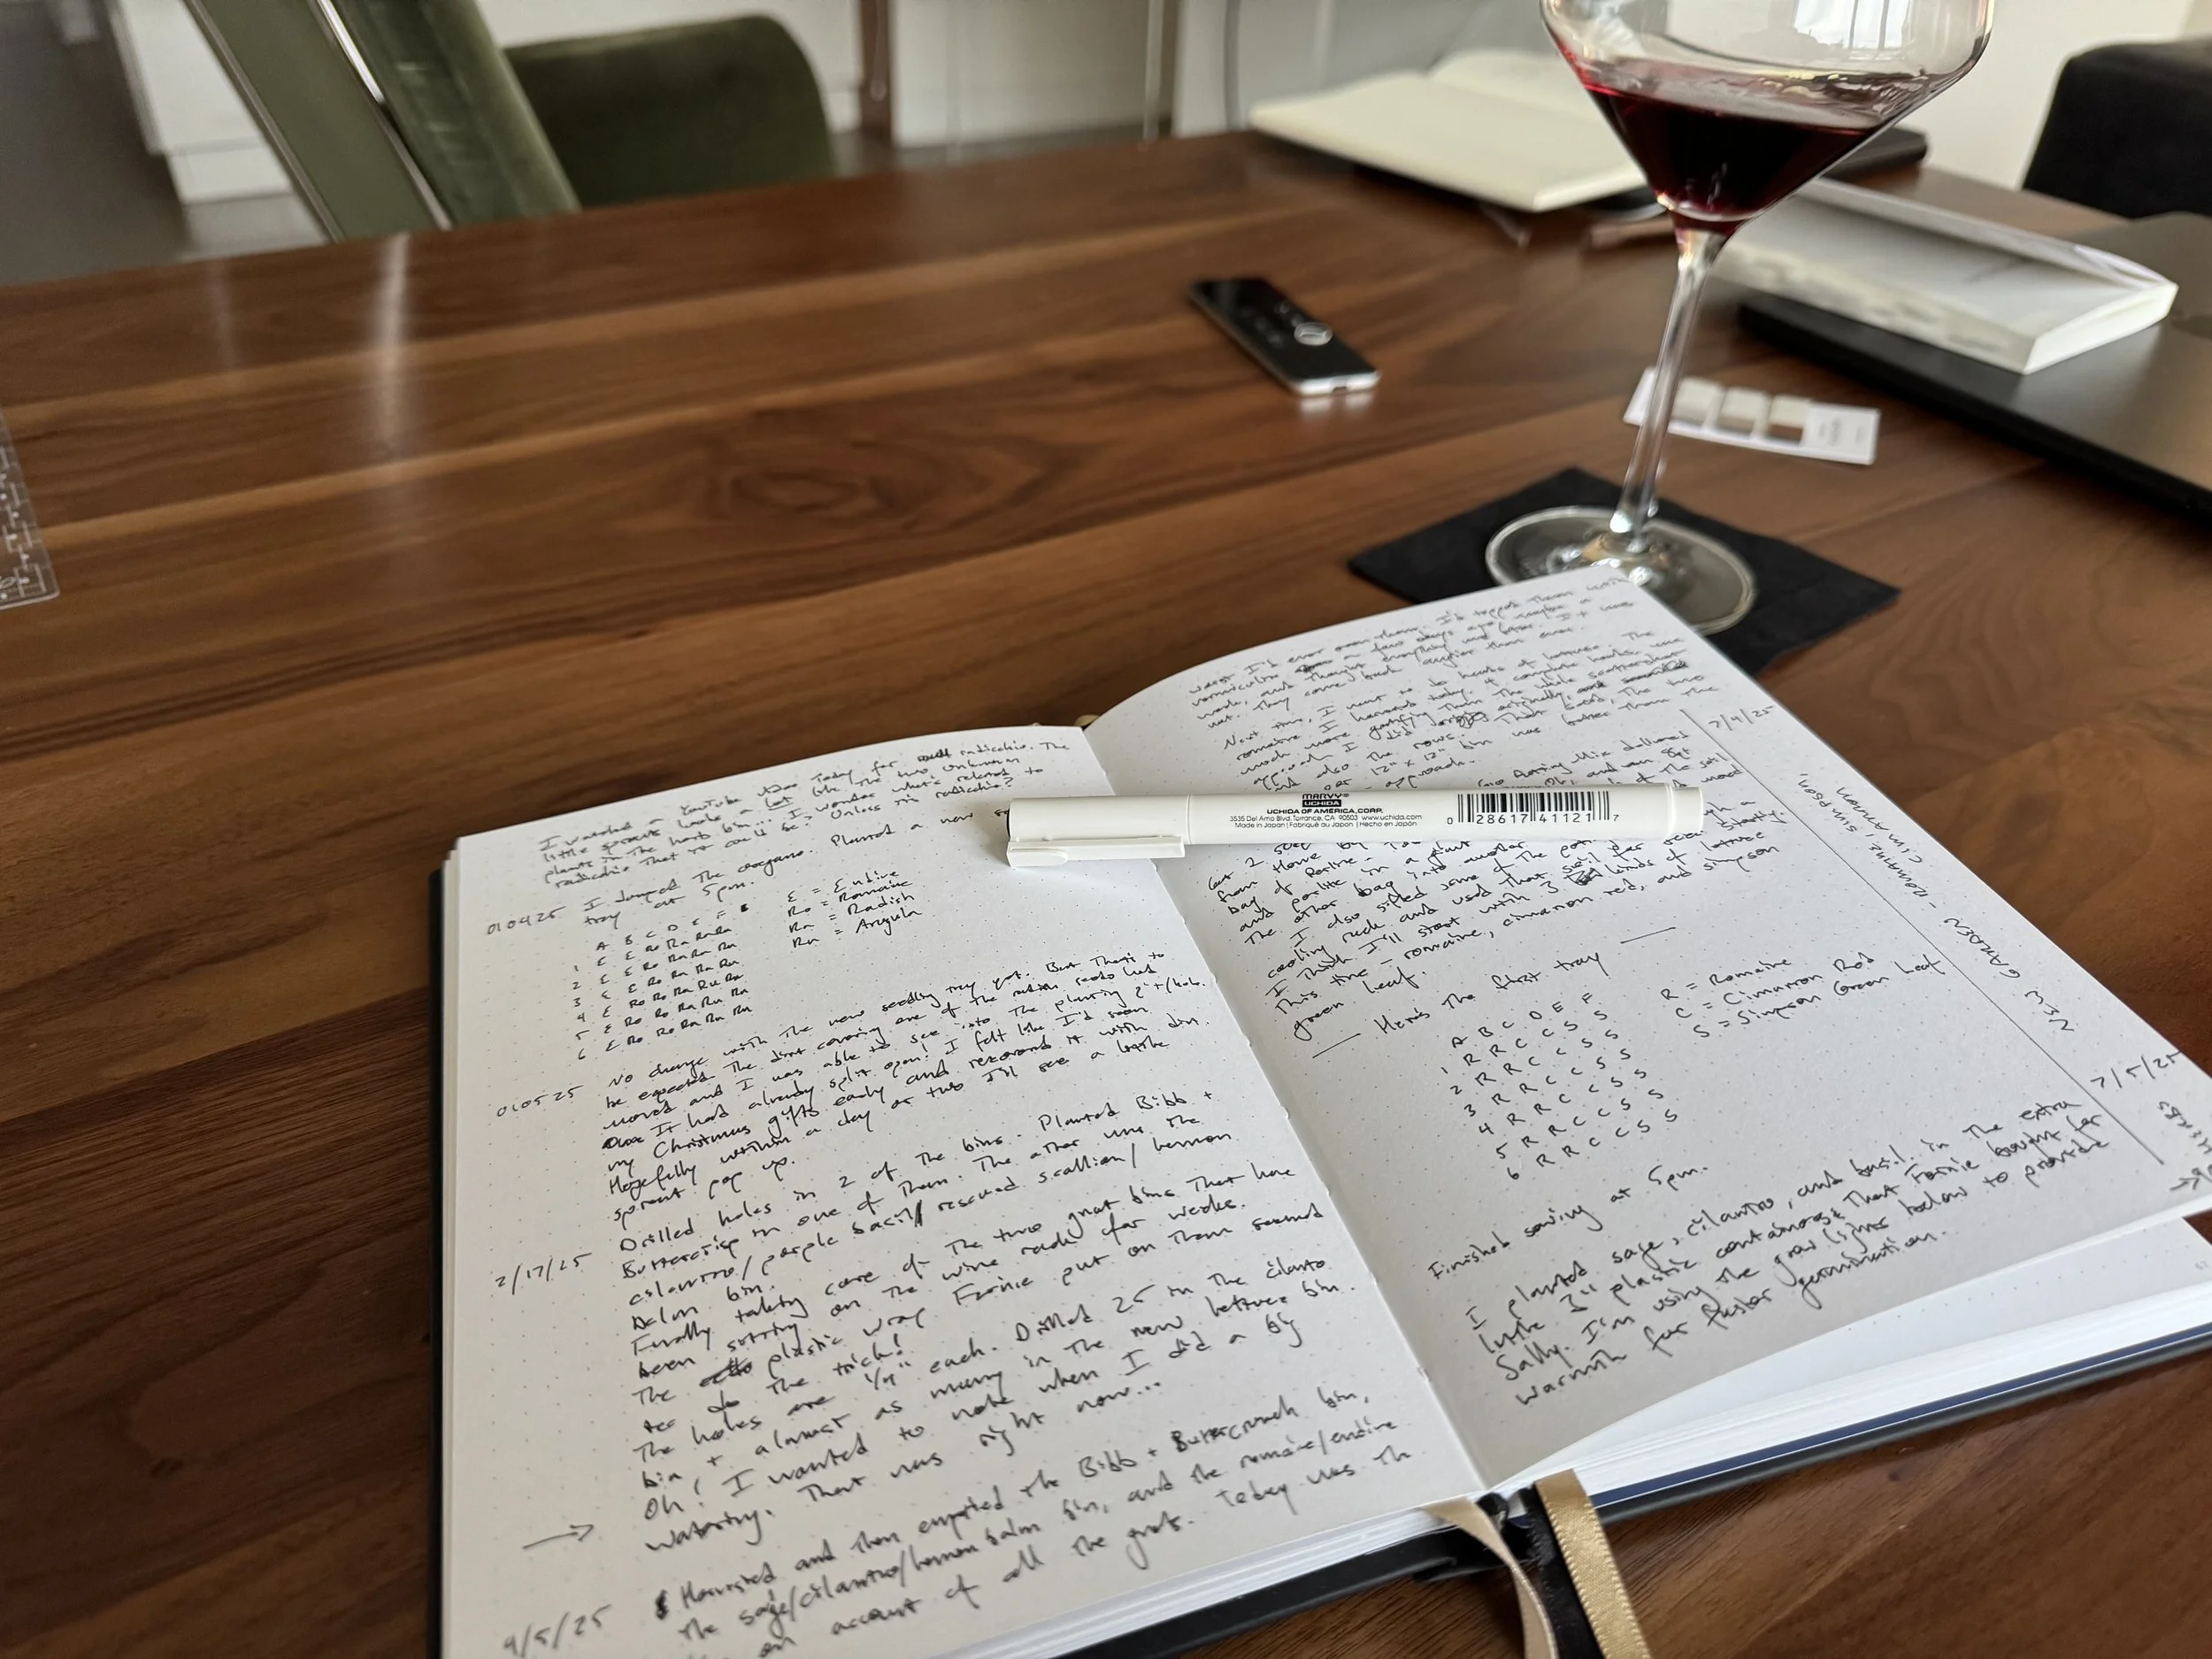 I watched a YouTube video today for radicchio. The
little sprouts looks a lot like the two unknown
plants in the herb bin... I wonder what's related to
radicchio that it could be? Unless it's radicchio?
010425 I dumped the oregano. Planted a new
tray at 5pm.
A B C D E F
E = Endive
Ro = Romaine
Ra = Radish
Ru = Arugula
1 E E Ro Ra Ra Ru
2 E E Ro Ra Ra Ru
3 E E Ro Ra Ra Ru
4 E Ro Ro Ra Ru Ru
5 E Ro Ro Ra Ru Ru
6 E Ro Ro Ra Ru Ru
010525 No change with the new seedling tray yet. But that's to
be expected. The dirt covering one of the radish seeds had
moved and I was able to see into the planting
It had already split open! I felt like I'd seen
my Christmas gifts early and recovered it with dirt.
Hopefully within a day or two I'll see a little
sprout pop up.
2/17/25 Drilled holes in 2 of the bins. Planted Bibb +
Buttercrisp in one of them. The other was the
cilantro/purple basil/rescued scallion/lemon
balm bin.
Finally taking care of the two gnat bins that have
been sitting on the wine rack for weeks.
The plastic wrap Fornie put on them seemed
to do the trick!
The holes are 1/4" each. Drilled 25 in the cilantro
bin, + almost as many in the new lettuce bin.
Oh! I wanted to note when I did a big
watering. That was right now...
→
4/5/25 Harvested and then emptied the Bibb + Buttercrunch bin,
the sage/cilantro/lemon balm bin, and the romaine/endive
on account of all the gnats. Today was th
worst I'd ever seen them. I'd topped them with
vermiculite a few days ago, maybe a
week, and thought everything had
not. They came back angrier than ever.
Next time, I want to do heads of lettuce. The
romaine I harvested today. 4 complete heads was
much more gratifying than the whole scattershot
approach I did originally,
and also the rows. That said, the two
per 12" x 12" bin was better than the
approach.
7/4/25
Potting Mix delivered
and an 8qt
of the soil
MARVY
UCHIDA
UCHIDA OF AMERICA, CORP.
3535 Del Amo Blvd. Torrance, CA 90503 www.uchida.com
Made in Japan | Fabriqué au Japon | Hecho en Japón
0 28617 41121 7
from Home
bag of perlite in a giant
and the other bag into another
I also sifted some of the pot soil for seed starting.
cooling rack and used that
I think I'll start with 3 kinds of lettuce
this time - romaine, cimarron red, and simpson
green leaf.
— Here's the first tray —
A B C D E F
R = Romaine
C = Cimarron Red
S = Simpson Green Leaf
1 R R C C S S
2 R R C C S S
3 R R C C S S
4 R R C C S S
5 R R C C S S
6 R R C C S S
Finished sowing at 5pm.
7/5/25
I planted sage, cilantro, and basil in the extra
little 3" plastic containers that Fornie bought for
Sally. I'm using the grow lights below to provide
warmth for faster germination.
NEW GARDEN - ROMAINE, SIMPSON,
CIMARRON